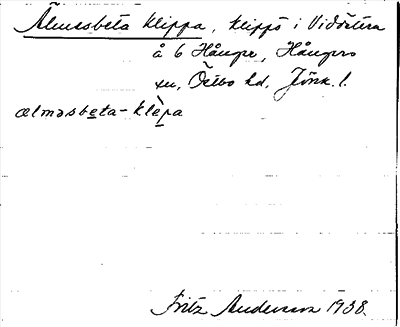 Älmssbeta klippa, klippa i Vidöstern
å 6 Hånger, Hångers
sn, Östbo hd, Jönk. l.
ælmasbeta-klèpa
Fritz Andersson 1938.